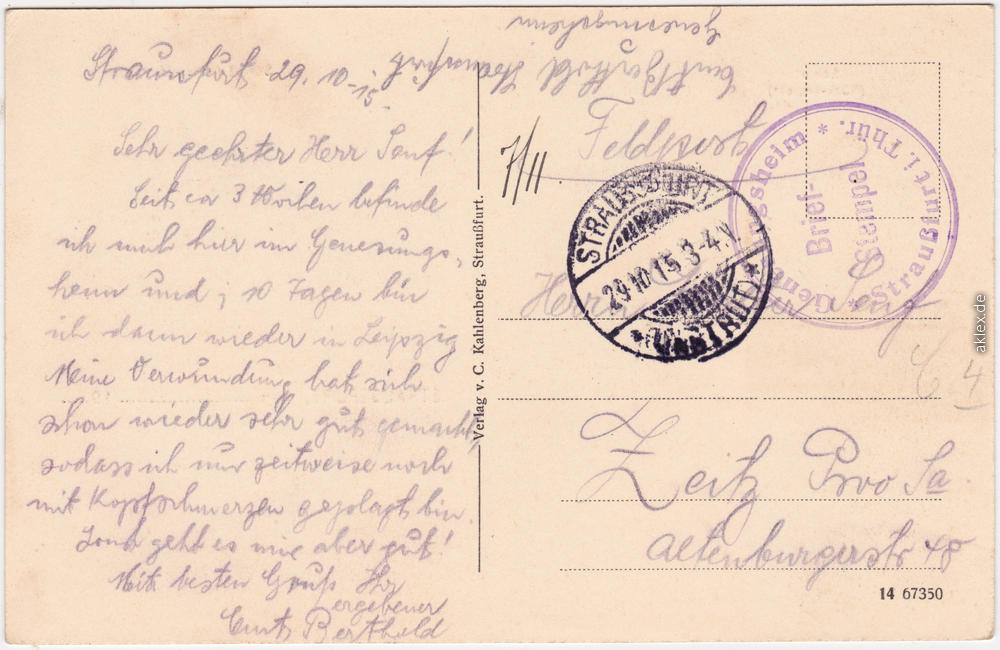 Straussfurt 29.10.15.
Sehr geehrter Herr Senf!
Seit ca 3 Wochen befinde
ich mich hier im Genesungs-
heim und, 10 Tagen bin
ich dann wieder in Leipzig
Meine Verwundung hat sich
schon wieder sehr gut gemacht,
sodass ich nur zeitweise noch
mit Kopfschmerzen geplagt bin.
Sonst geht es mir aber gut!
Mit besten Gruß Ihr
ergebener
Curt Berthold
Verlag v. C. Kahlenberg, Straußfurt.
Genesungsheim
Curt Berthold
Feldpost
7/11
STRAUSSFURT
29.10.15 3-4 N.
(UNSTRUT)
Genesungsheim * Straußfurt i. Thür. *
Brief-
Stempel
Herrn
Zeitz Prov Sa.
Altenburgerstr 48
4
14 67350
© aklex.de